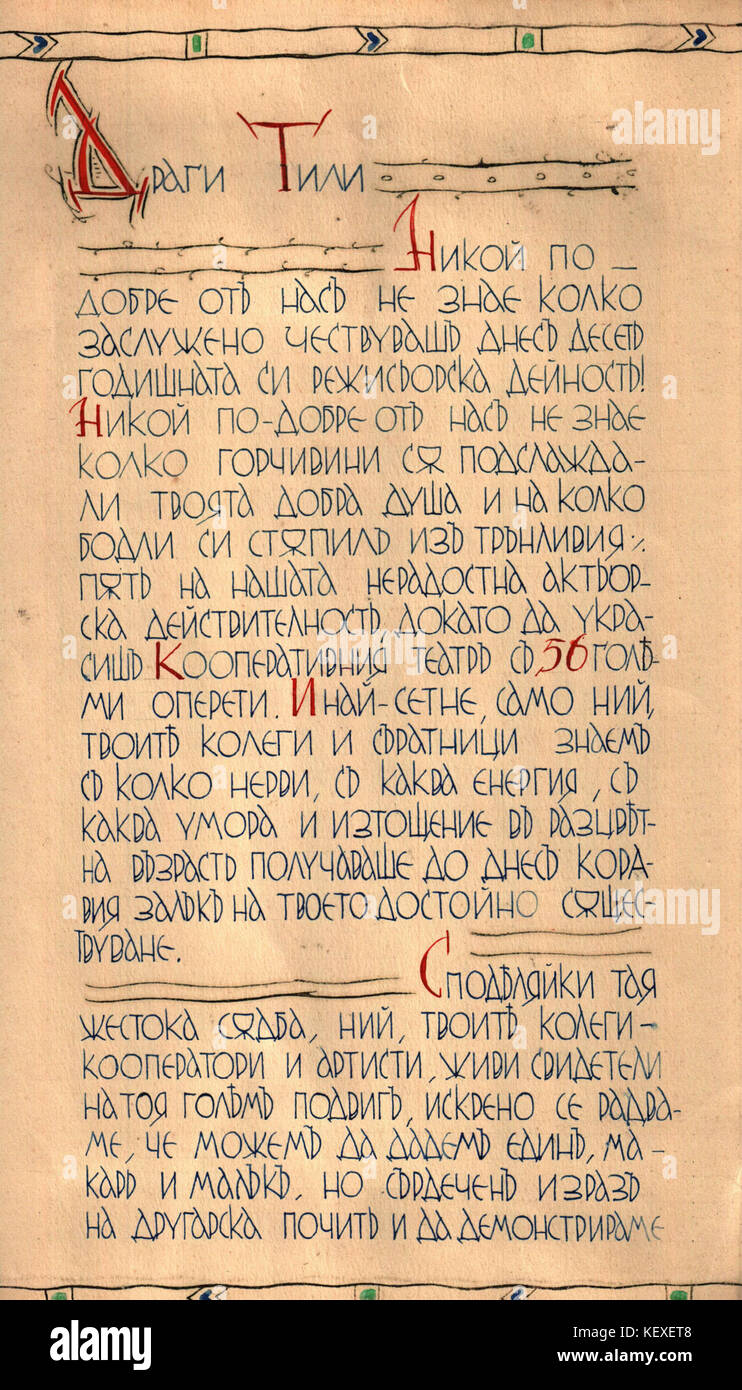 Драги Тили
Никой по-
добре отъ насъ не знае колко
заслужено чествувашъ днесъ десеть
годишната си режисьорска дейность!
Никой по-добре отъ насъ не знае
колко горчивини сѫ подслажда-
ли твоята добра душа и на колко
бодли си стѫпилъ изъ трънливия ./.
пѫть на нашата нерадостна актьор-
ска действителность, докато да укра-
сишъ Кооперативния театръ съ 56 голѣ-
ми оперети. И най-сетне, само ний,
твоитѣ колеги и сѫратници знаемъ
съ колко нерви, съ каква енергия, съ
каква умора и изтощение въ разцвѣт-
на възрасть получаваше до днесъ кора-
вия залъкъ на твоето достойно сѫщес-
твуване.
Сподѣляйки тая
жестока сѫдба, ний, твоитѣ колеги-
кооператори и артисти, живи свидетели
на тоя голѣмъ подвигъ, искрено се радва-
ме, че можемъ да дадемъ единъ, ма-
каръ и малъкъ, но сърдеченъ изразъ
на другарска почить и да демонстрираме
alamy
alamy stock photo
KEXET8
www.alamy.com